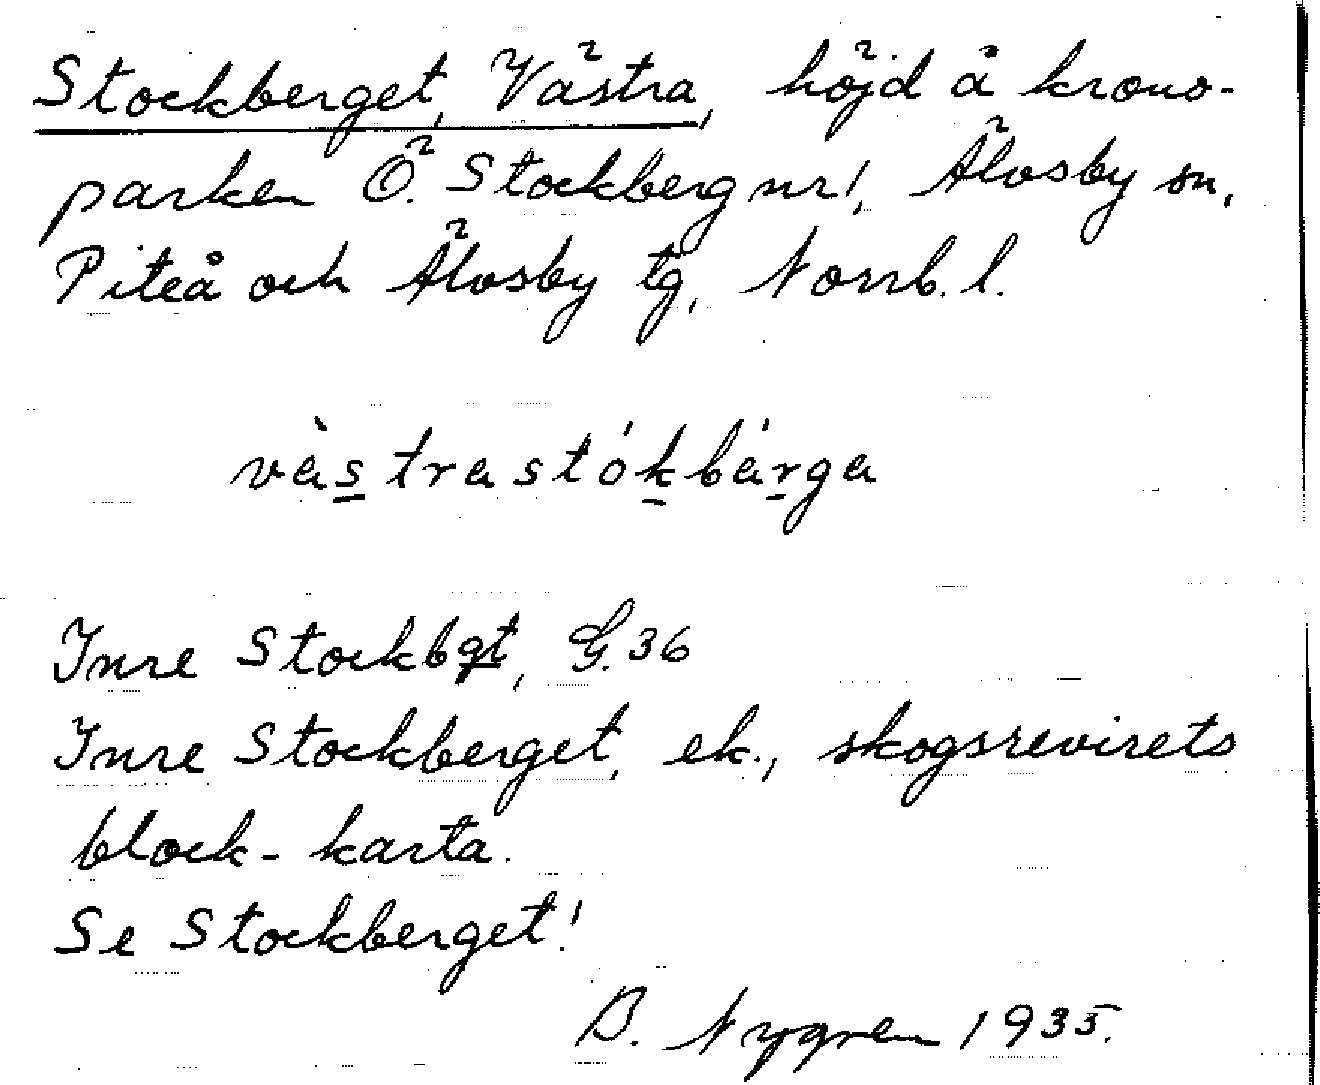 Stockberget, Västra, höjd å krono-
parken Ö. Stockberg nr 1, Älvsby sn,
Piteå och Älvsby tg, Norrb. l.
vàstrastókbárga
Inre Stockbgt, G. 36
Inre Stockberget, ek., skogsrevirets
block-karta.
Se Stockberget!
B. Nygren 1935.